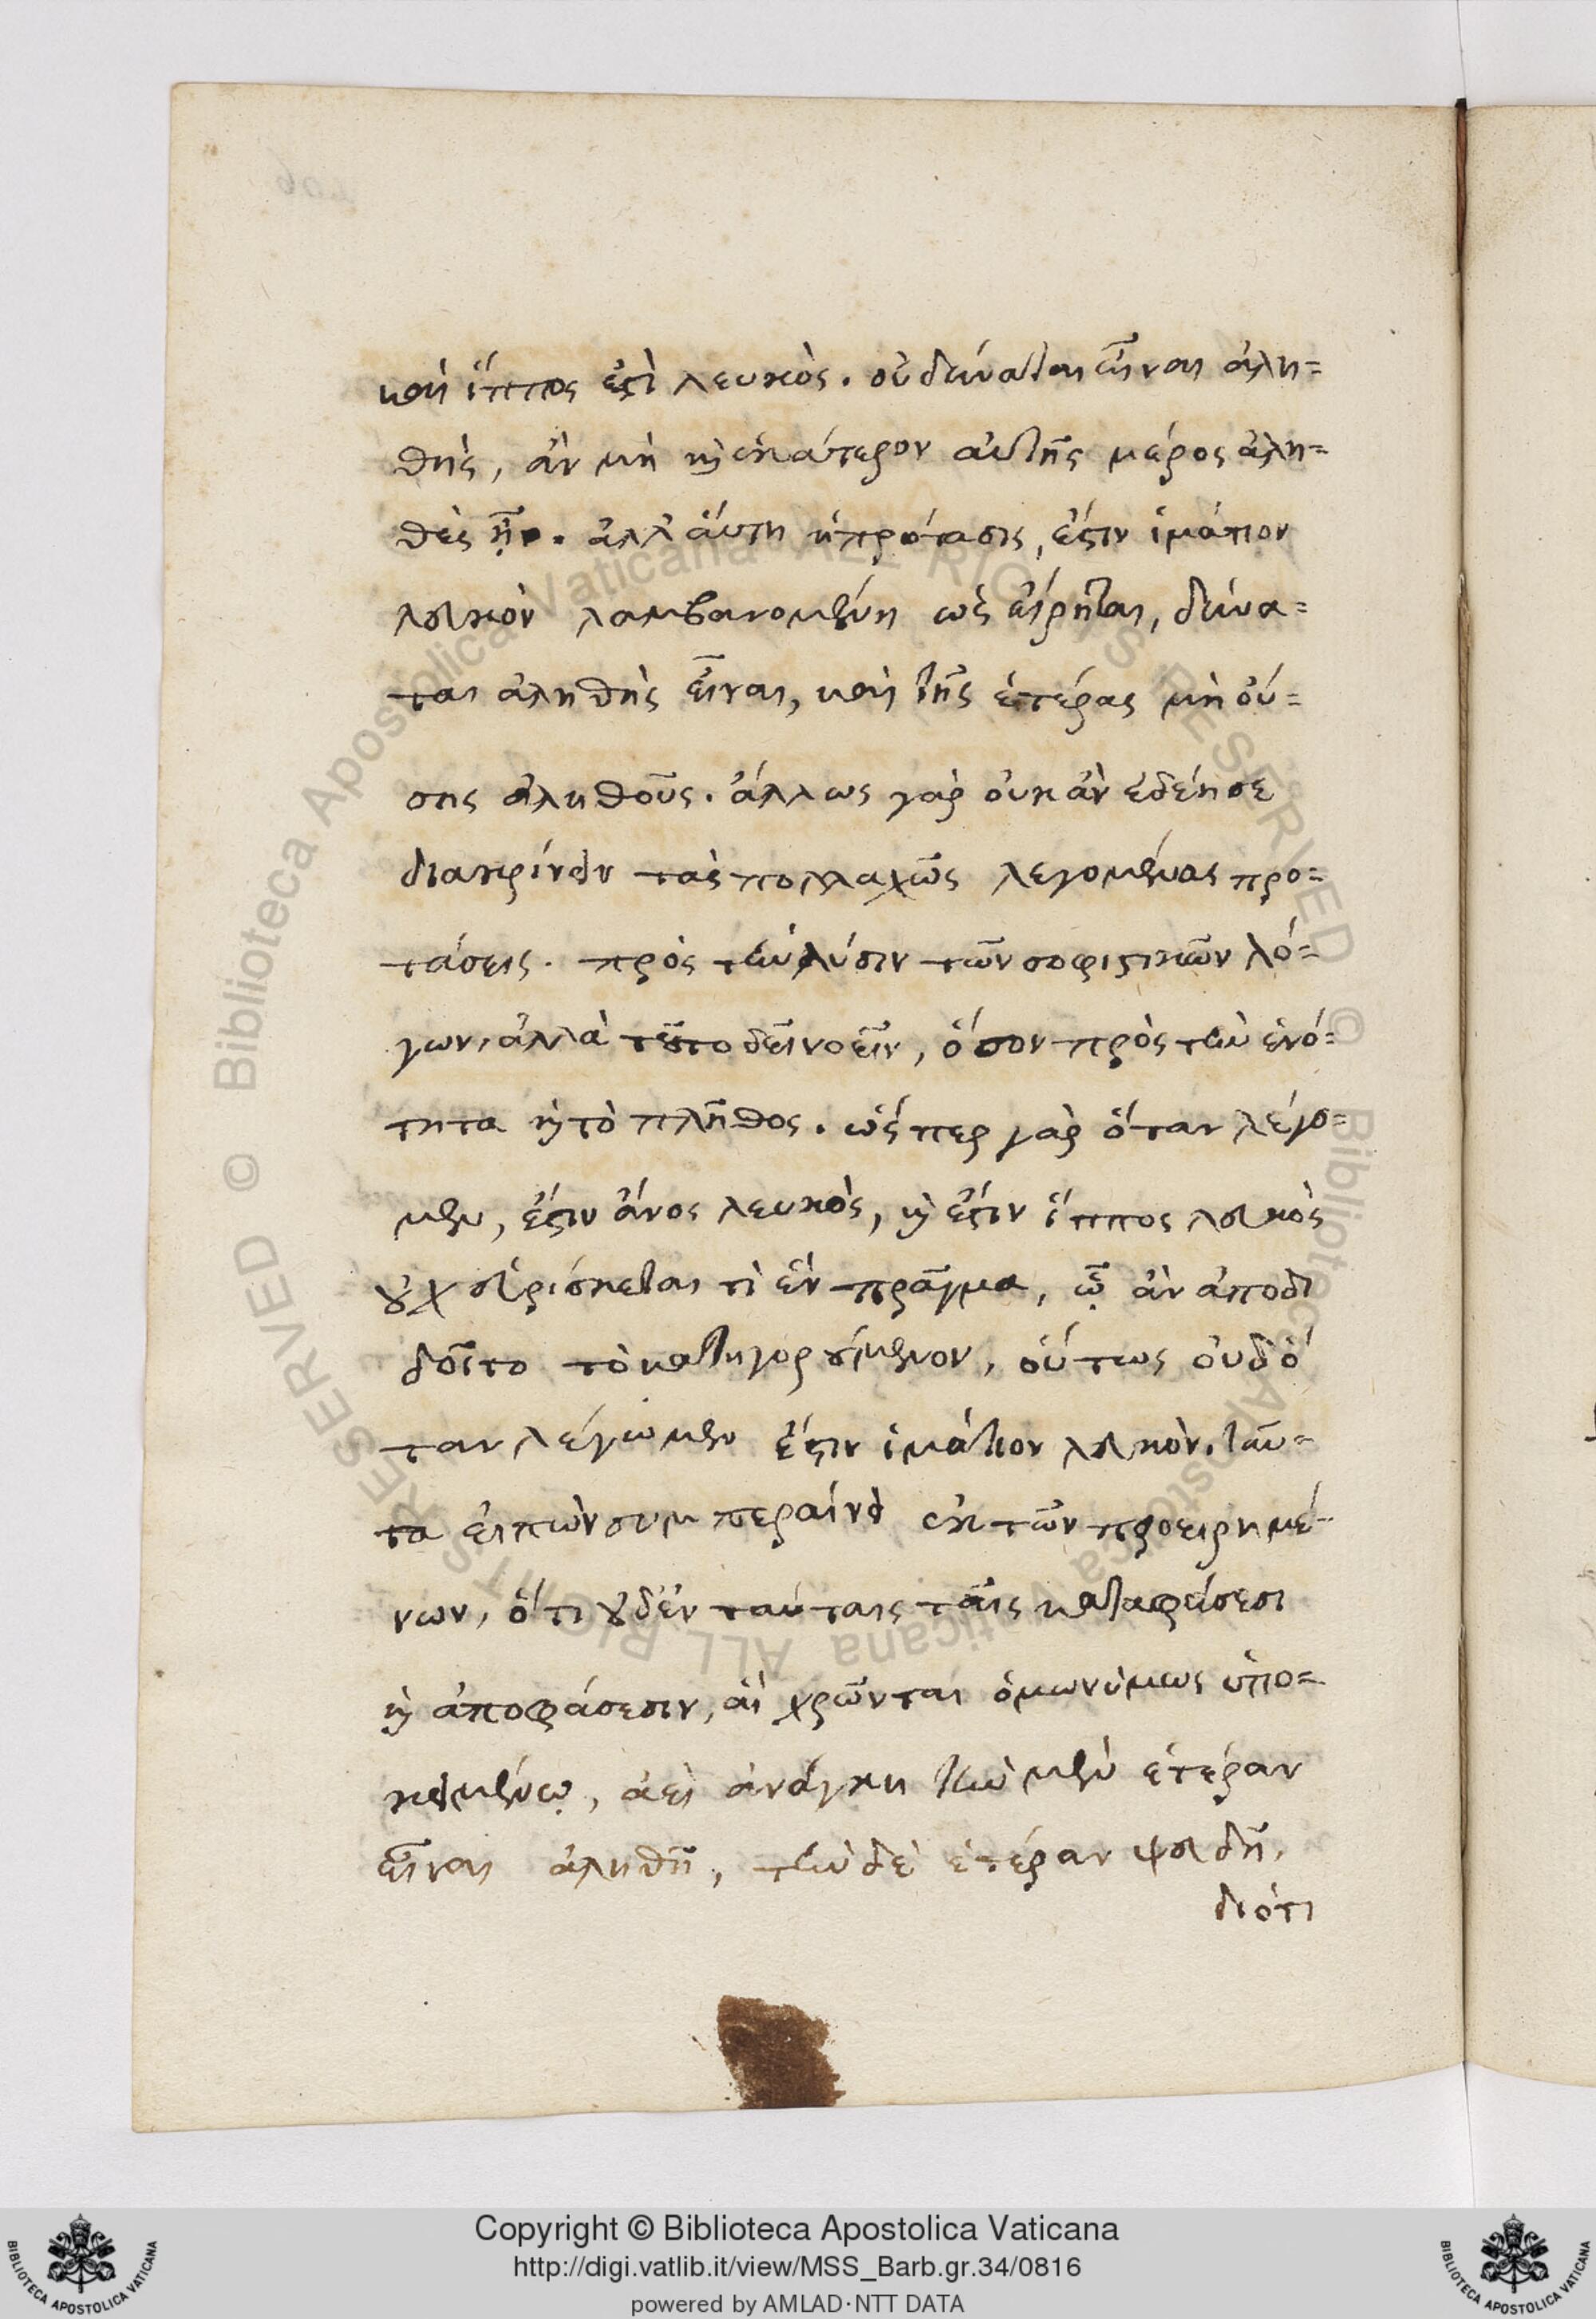 καὶ ἵππος ἐστὶ λευκὸς. οὐ δύναται εἶναι ἀλη=
θὴς, ἀν μὴ καὶ ἑκάτερον αὐτῆς μέρος ἀλη=
θὲς ᾖ. ἀλλ' ἄυτη ἡ πρότασις, ἔστιν ἱμάτιον
λευκὸν λαμβανομένη ὡς εἴρηται, δύνα=
ται ἀληθὴς εἶναι, καὶ τῆς ἑτέρας μὴ οὐ=
σης ἀληθοῦς. ἄλλως γὰρ οὐκ ἀν ἐδέησε
διακρίνειν τὰς πολλαχῶς λεγομένας προ=
τάσεις. πρὸς τὴν λύσιν τῶν σοφιστικῶν λό=
γων, ἀλλὰ τοῦτο δεῖ νοεῖν, ὅσον πρὸς τὴν ἑνό=
τητα καὶ τὸ πλῆθος. ὥσπερ γὰρ ὅταν λέγο=
μεν, ἔστιν ἄνος λευκὸς, καὶ ἔστιν ἵππος λευκὸς
οὐχ εὑρίσκεται τὶ ἓν πρᾶγμα, ᾧ ἀν ἀποδι
δοῖτο τὸ κατηγορούμενον, οὕτως οὐδ' ὅ
ταν λέγωμεν ἔστιν ἱμάτιον λευκὸν. ταῦ=
τα εἰπὼν συμπεραίνει ἐκ τῶν προειρημέ-
νων, ὅτι οὐδ' ἐν ταύταις ταῖς καταφάσεσι
καὶ ἀποφάσεσιν, αἱ χρῶνται ὁμωνύμως ὑπο=
κειμένῳ, ἀεὶ ἀνάγκη τὴν μὲν ἑτέραν
εἶναι ἀληθῆ, τὴν δὲ ἑτέραν ψευδῆ.
διότι
Copyright © Biblioteca Apostolica Vaticana
http://digi.vatlib.it/view/MSS_Barb.gr.34/0816
powered by AMLAD·NTT DATA
BIBLIOTECA APOSTOLICA VATICANA
BIBLIOTECA APOSTOLICA VATICANA
© Biblioteca Apostolica Vaticana ALL RIGHTS RESERVED
© Biblioteca Apostolica Vaticana ALL RIGHTS RESERVED